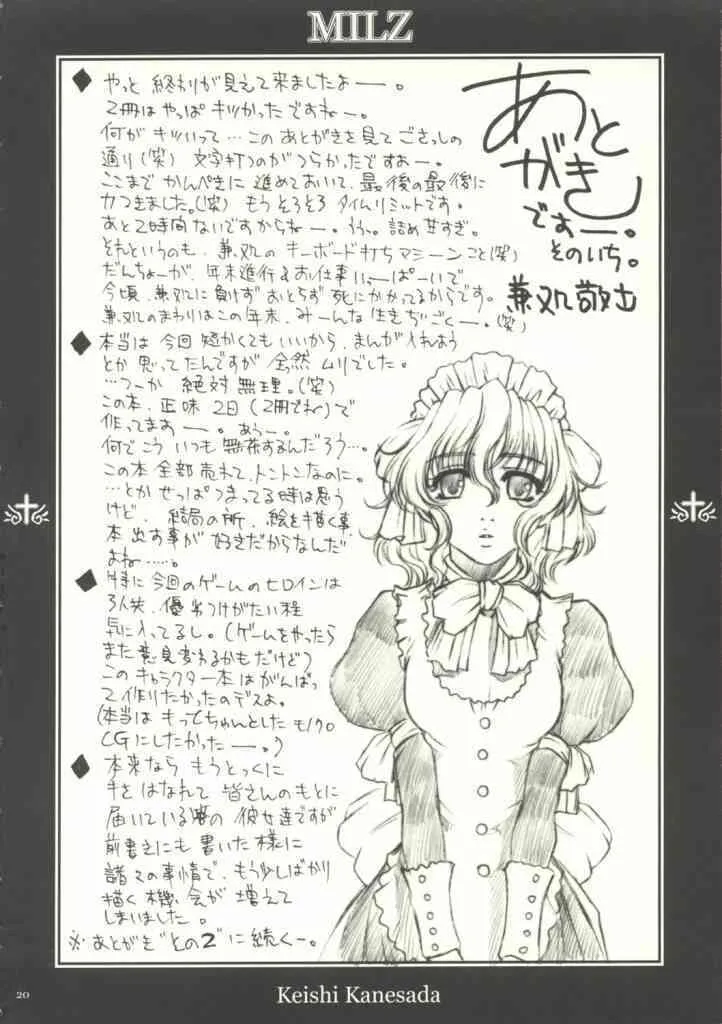 MILZ
あとがき
ですぉー。
そのいち。
兼処敬士
◆やっと 終わりが見えて来ましたよー。
2冊はやっぱ キツかったですねー。
何が キツいって…このあとがきを見て ごさっしの
通り(笑) 文字打つのがつらかったですぉー。
ここまで かんぺきに 進めておいて、最後の最後に
力つきました。(笑) もうそろそろ タイムリミットです。
あと2時間ないですからねー。うう。詰め甘すぎ。
それというのも、兼処の キーボード打ちマシーンこと(笑)
だんちょーが、年末進行&お仕事いっーぱーいで
今頃、兼処に負けず おとらず 死にかかってるからです。
兼処のまわりはこの年末、みーんな 生きぢごくー。(笑)
◆本当は 今回 短かくても いいから、まんが入れよう
とか 思ってたんですが 全然 ムリでした。
…つーか 絶対 無理。(笑)
この本、正味 2日(2冊でね)で
作ってますぉー。あうー。
何でこう いつも 無茶するんだろう…。
この本 全部 売れて、トントンなのに。
…とか せっぱつまってる時は思う
けど、結局の所、絵を描く事
本 出す事が 好きだからなんだ
よね……。
◆特に 今回のゲームのヒロインは
3人共、優劣つけがたい程
気に入ってるし。(ゲームをやったら
また意見変わるかもだけど)
この キャラクター本 はがんばっ
て作りたかったのデスよ。
(本当は もっとちゃんとした モノクロ
CGにしたかったー。)
◆本来なら もうとっくに
手を はなれて 皆さんのもとに
届いている筈の 彼女達ですが
前書きにも 書いた様に
諸々の事情で、もう少しばかり
描く 機会が 増えて
しまいました。
※あとがき"その2"に続くー。
20
Keishi Kanesada